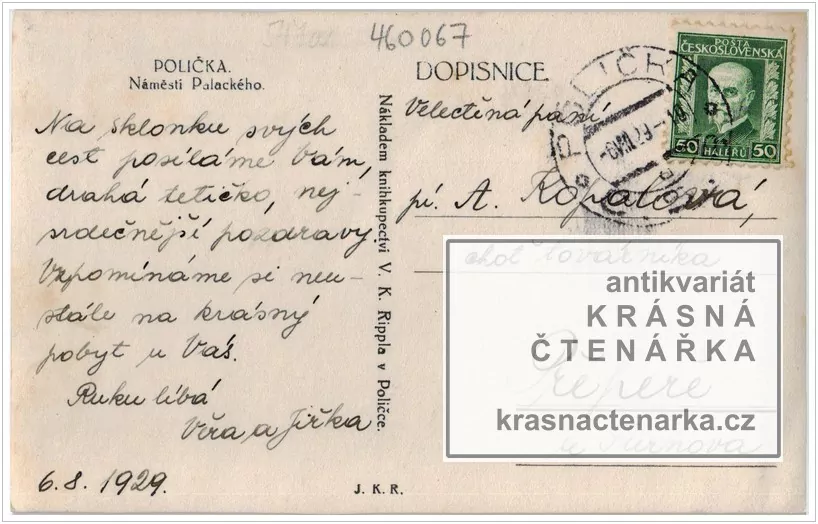 460067
POLIČKA.
Náměstí Palackého.
Na sklonku svých
cest posíláme Vám,
drahá tetičko, nej-
srdečnější pozdravy
Vzpomínáme si neu-
stále na krásný
pobyt u Vás.
Ruku líbá
Věra a Jiřka
6.8.1929.
J. K. R.
Nákladem knihkupectví V. K. Rippla v Poličce.
DOPISNICE
POŠTA
ČESKOSLOVENSKÁ
50 HALÉŘŮ 50
POLIČKA
Velectěná paní
pí. A. Kopalová,
choť továrníka
Přepeře
u Turnova
antikvariát
KRÁSNÁ
ČTENÁŘKA
krasnactenarka.cz